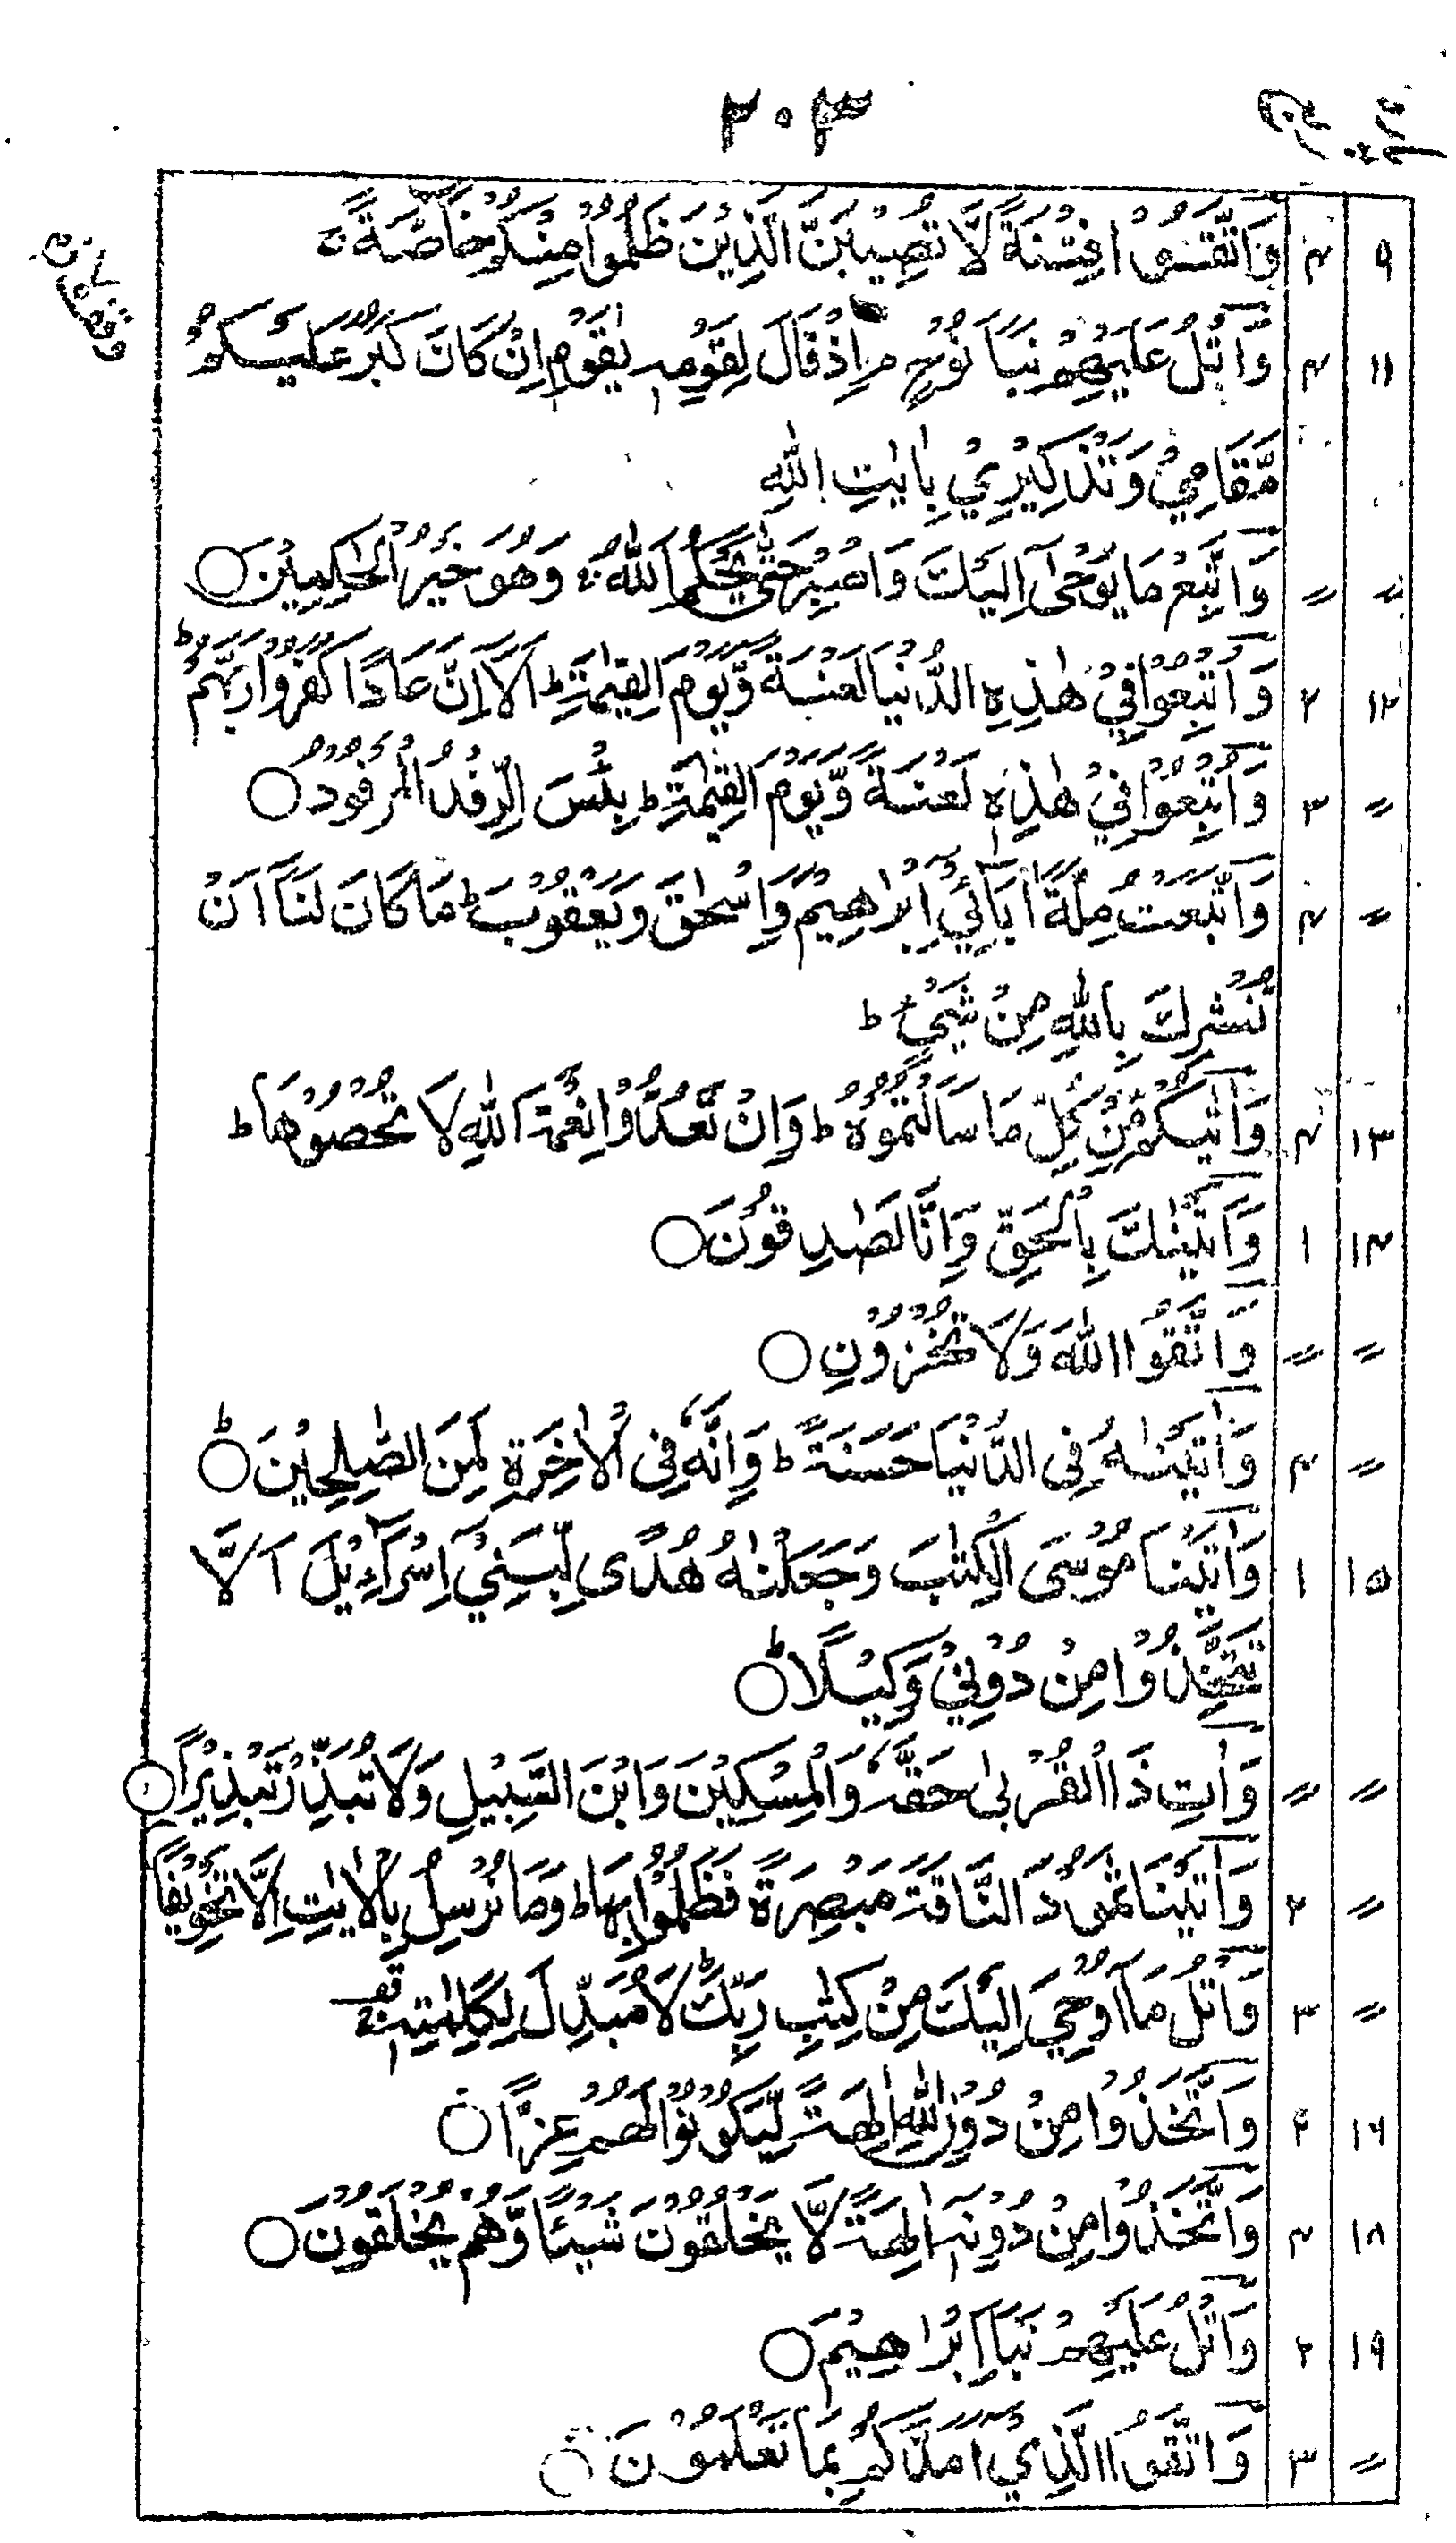 ۲۰۳
۹ ۴ وَاتَّقُوْا فِتْنَةً لَّا تُصِيْبَنَّ الَّذِيْنَ ظَلَمُوْا مِنْكُمْ خَآصَّةً ۚ
وقف لازم
۱۱ ۴ وَاتْلُ عَلَيْهِمْ نَبَاَ نُوْحٍ م اِذْ قَالَ لِقَوْمِهٖ يٰقَوْمِ اِنْ كَانَ كَبُرَ عَلَيْكُمْ
مَّقَامِيْ وَتَذْكِيْرِيْ بِاٰيٰتِ اللّٰهِ
〃 〃 وَاتَّبِعْ مَا يُوْحٰٓى اِلَيْكَ وَاصْبِرْ حَتّٰى يَحْكُمَ اللّٰهُ ۚ وَهُوَ خَيْرُ الْحٰكِمِيْنَ ○
۱۲ ۲ وَاُتْبِعُوْا فِيْ هٰذِهِ الدُّنْيَا لَعْنَةً وَّيَوْمَ الْقِيٰمَةِ ط اَلَآ اِنَّ عَادًا كَفَرُوْا رَبَّهُمْ ط
〃 ۳ وَاُتْبِعُوْا فِيْ هٰذِهٖ لَعْنَةً وَّيَوْمَ الْقِيٰمَةِ ط بِئْسَ الرِّفْدُ الْمَرْفُوْدُ ○
〃 ۴ وَاتَّبَعْتُ مِلَّةَ اٰبَآئِيْ اِبْرٰهِيْمَ وَاِسْحٰقَ وَيَعْقُوْبَ ط مَا كَانَ لَنَآ اَنْ
نُّشْرِكَ بِاللّٰهِ مِنْ شَيْءٍ ط
۱۳ ۴ وَاٰتٰىكُمْ مِّنْ كُلِّ مَا سَاَلْتُمُوْهُ ط وَاِنْ تَعُدُّوْا نِعْمَةَ اللّٰهِ لَا تُحْصُوْهَا ط
۱۴ ۱ وَاَتَيْنٰكَ بِالْحَقِّ وَاِنَّا لَصٰدِقُوْنَ ○
〃 〃 وَاتَّقُوا اللّٰهَ وَلَا تُخْزُوْنِ ○
〃 ۴ وَاٰتَيْنٰهُ فِى الدُّنْيَا حَسَنَةً ط وَاِنَّهٗ فِى الْاٰخِرَةِ لَمِنَ الصّٰلِحِيْنَ ○ ط
۱۵ ۱ وَاٰتَيْنَا مُوْسَى الْكِتٰبَ وَجَعَلْنٰهُ هُدًى لِّبَنِيْٓ اِسْرَآءِيْلَ اَلَّا
تَتَّخِذُوْا مِنْ دُوْنِيْ وَكِيْلًا ○ ط
〃 〃 وَاٰتِ ذَا الْقُرْبٰى حَقَّهٗ وَالْمِسْكِيْنَ وَابْنَ السَّبِيْلِ وَلَا تُبَذِّرْ تَبْذِيْرًا ○
〃 ۲ وَاٰتَيْنَا ثَمُوْدَ النَّاقَةَ مُبْصِرَةً فَظَلَمُوْا بِهَا ط وَمَا نُرْسِلُ بِالْاٰيٰتِ اِلَّا تَخْوِيْفًا
〃 ۳ وَاتْلُ مَآ اُوْحِيَ اِلَيْكَ مِنْ كِتٰبِ رَبِّكَ ط لَا مُبَدِّلَ لِكَلِمٰتِهٖ قف
۱۶ ۴ وَاتَّخَذُوْا مِنْ دُوْنِ اللّٰهِ اٰلِهَةً لِّيَكُوْنُوْا لَهُمْ عِزًّا ○
۱۸ ۴ وَاتَّخَذُوْا مِنْ دُوْنِهٖٓ اٰلِهَةً لَّا يَخْلُقُوْنَ شَيْئًا وَّهُمْ يُخْلَقُوْنَ ○
۱۹ ۲ وَاتْلُ عَلَيْهِمْ نَبَاَ اِبْرٰهِيْمَ ○
〃 ۳ وَاتَّقُوا الَّذِيْٓ اَمَدَّكُمْ بِمَا تَعْلَمُوْنَ ○